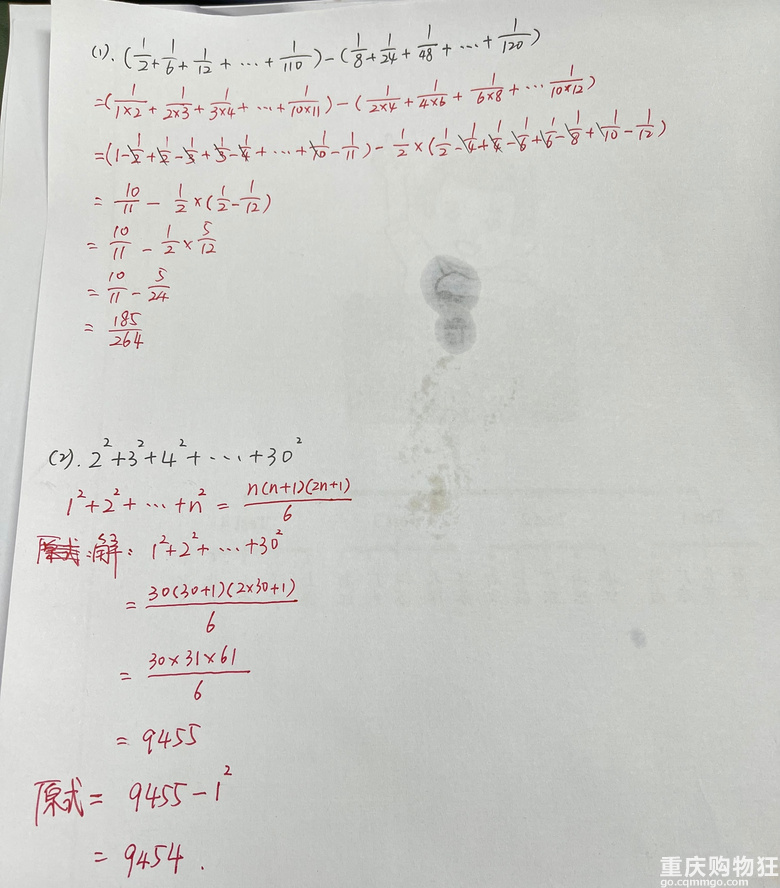 (1). (1/2+1/6+1/12+⋯+1/110)-(1/8+1/24+1/48+⋯+1/120)
=(1/1×2+1/2×3+1/3×4+⋯+1/10×11)-(1/2×4+1/4×6+1/6×8+⋯1/10×12)
=(1-1/2+1/2-1/3+1/3-1/4+⋯+1/10-1/11)-1/2×(1/2-1/4+1/4-1/6+1/6-1/8+1/10-1/12)
=10/11-1/2×(1/2-1/12)
=10/11-1/2×5/12
=10/11-5/24
=185/264
(2). 2²+3²+4²+⋯+30²
1²+2²+⋯+n²=n(n+1)(2n+1)/6
原式:解: 1²+2²+⋯+30²
=30(30+1)(2×30+1)/6
=30×31×61/6
=9455
原式=9455-1²
=9454.
重庆购物狂
go.cqmmgo.com